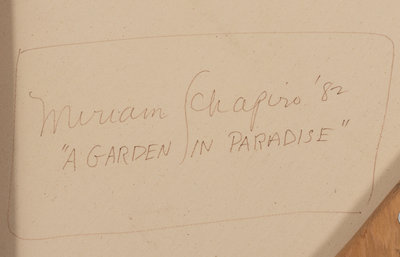 Miriam Schapiro '82
"A GARDEN IN PARADISE"